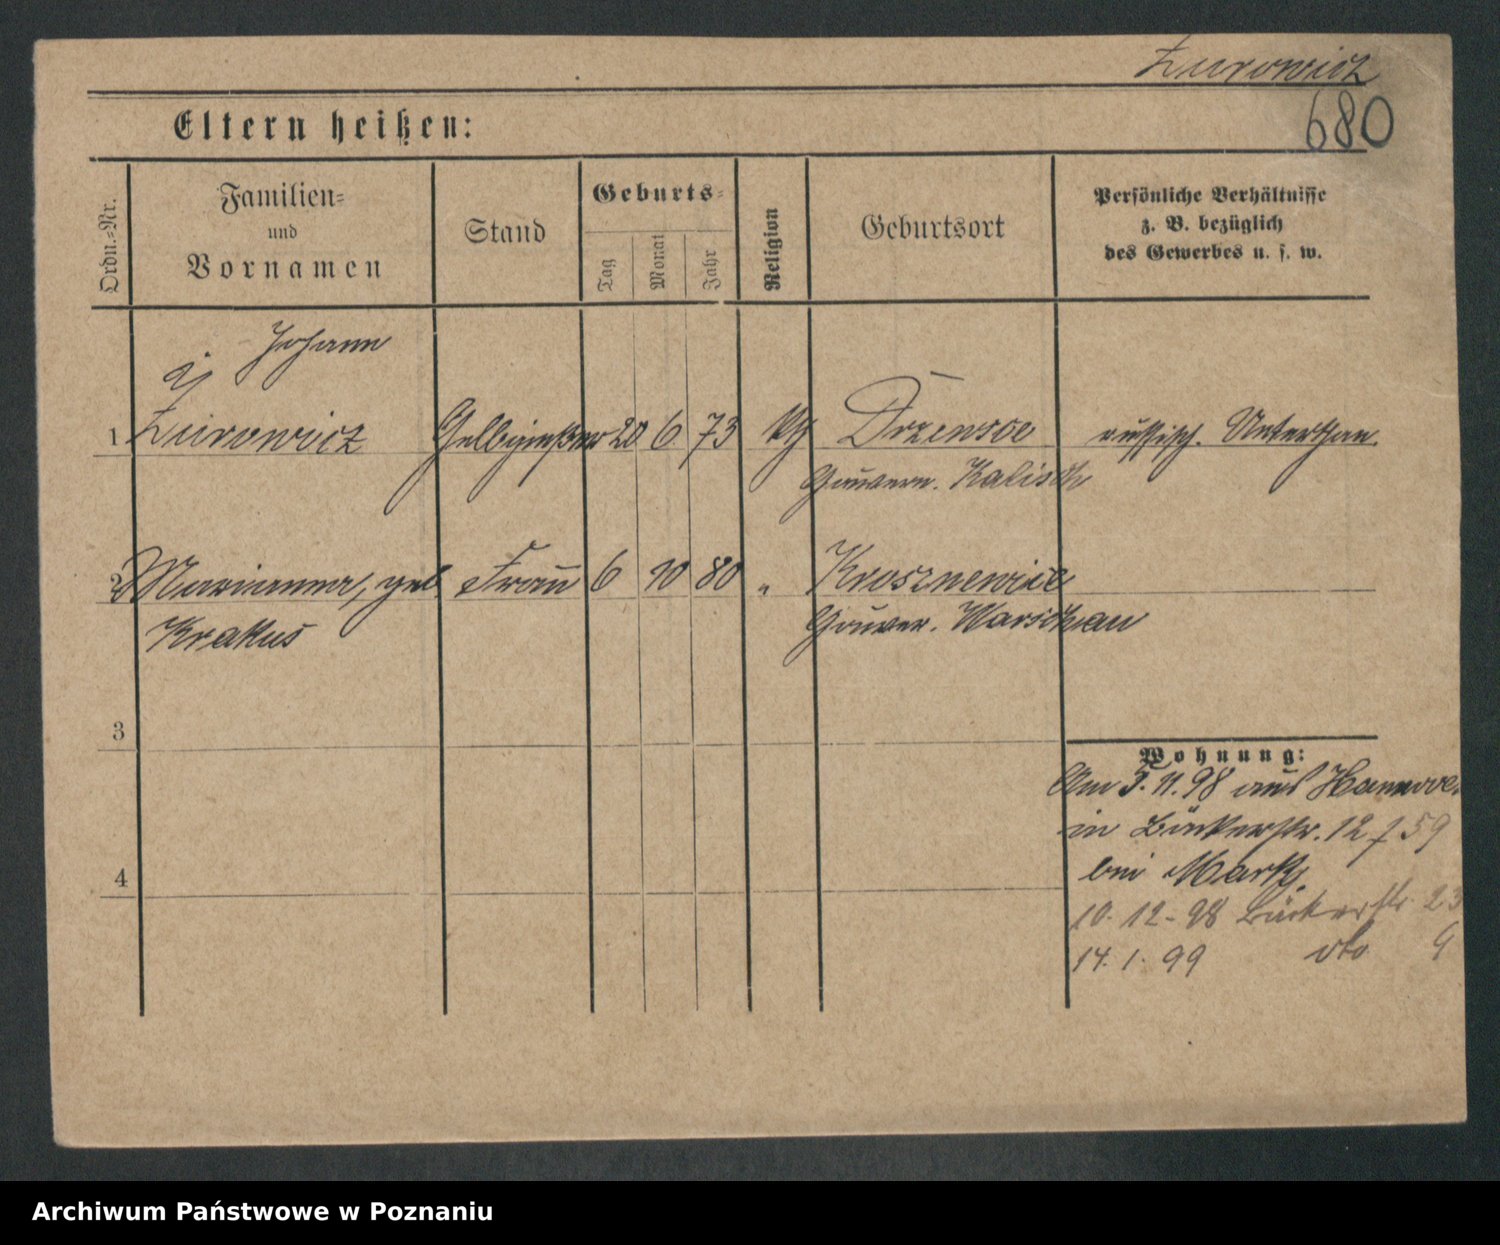 Zurowicz
680
Eltern heißen:
Ordn.-Nr.
Familien-
und
Vornamen
Stand
Geburts-
Tag
Monat
Jahr
Religion
Geburtsort
Persönliche Verhältnisse
z. B. bezüglich
des Gewerbes u. s. w.
Johann
1 Zurowicz Gelbgießer 20 6 73 kth Drzewce russisch. Unterthan.
Gouvern. Kalisch
2 Marianna, geb Frau 6 10 80 " Krosznewice
Krakus Gouver. Warschau
3
Wohnung:
Am 5.11.98 aus Hannover
in Bäckerstr. 12 f 59
bei Mark.
4
10.12-98 Bäckerstr. 23
14.1.99 dto 9
Archiwum Państwowe w Poznaniu